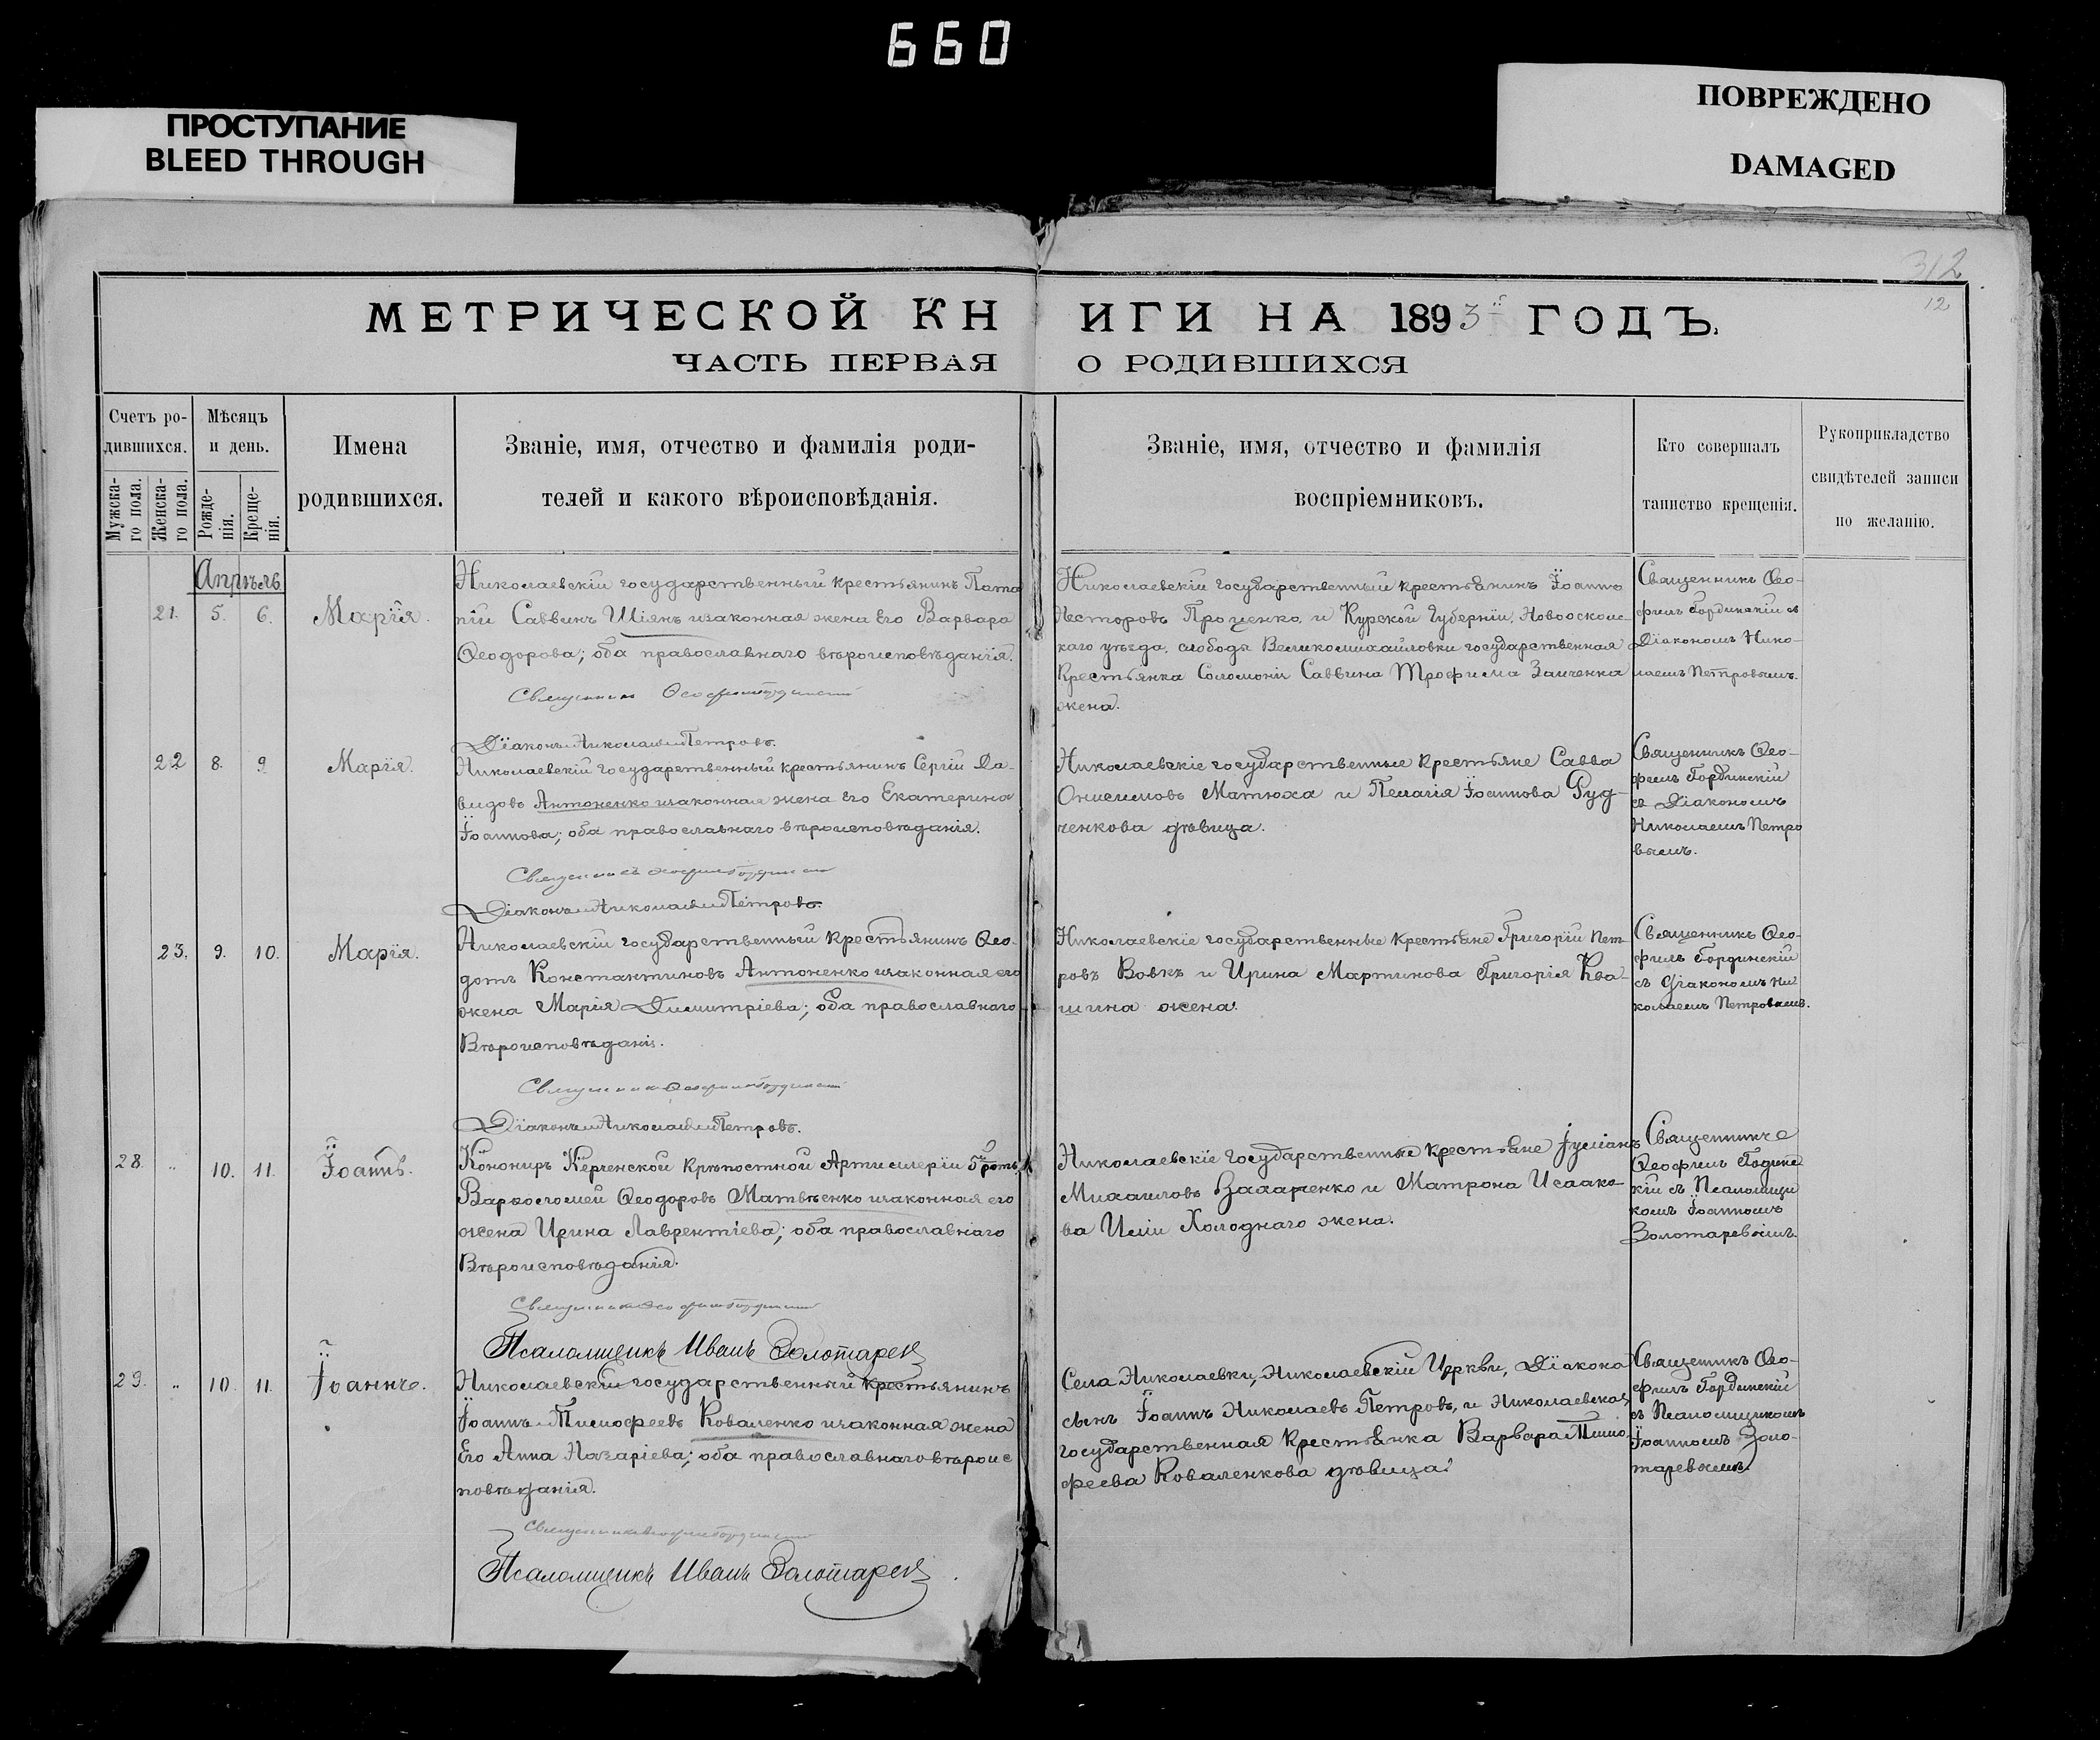 660
ПРОСТУПАНИЕ
BLEED THROUGH
ПОВРЕЖДЕНО
DAMAGED
312
12
МЕТРИЧЕСКОЙ КНИГИ НА 1893й ГОДЪ.
ЧАСТЬ ПЕРВАЯ О РОДИВШИХСЯ
Счетъ ро-
дившихся.
Мужска-
го пола.
Женска-
го пола.
Мѣсяцъ
и день.
Рожде-
нія.
Креще-
нія.
Имена
родившихся.
Званіе, имя, отчество и фамилія роди-
телей и какого вѣроисповѣданія.
Званіе, имя, отчество и фамилія
воспріемниковъ.
Кто совершалъ
таинство крещенія.
Рукоприкладство
свидѣтелей записи
по желанію.
Апрѣль
21. 5. 6. Марія.
Николаевскій государственный крестьянинъ Пота
пій Саввинъ Шіянъ изаконная жена Его Варвара
Ѳеодорова; оба православнаго вѣроисповѣданія.
Священникъ
Діаконъ Николай Петровъ.
Николаевскій государственный крестьянинъ Іоаннъ
Несторовъ Проценко, и Курской Губерніи, Новооскол-
каго уѣзда, слободы Великомихайловки государственная
Крестьянка Соломонія Саввина Трофима Заиченка
жена.
Священникъ Ѳео-
филъ Гординскій съ
Діакономъ Нико-
лаемъ Петровымъ.
22 8. 9 Марія.
Николаевскій государственный крестьянинъ Сергій Да-
видовъ Антоненко изаконная жена Его Екатерина
Іоаннова; оба православнаго вѣроисповѣданія.
Священникъ
Діаконъ Николай Петровъ.
Николаевскіе государственные крестьяне Савва
Онисимовъ Матюха и Пелагія Іоаннова Руд-
ченкова дѣвица.
Священникъ Ѳео-
филъ Гординскій
съ Діакономъ
Николаемъ Петро
вымъ.
23. 9. 10. Марія.
Николаевскій государственный крестьянинъ Ѳео-
дотъ Константиновъ Антоненко изаконная его
жена Марія Димитріева; оба православнаго
Вѣроисповѣданія.
Священникъ
Діаконъ Николай Петровъ.
Николаевскіе государственные крестьяне Григорій Пет-
ровъ Вовкъ и Ирина Мартинова Григорія Ква-
шина жена.
Священникъ Ѳео-
филъ Гординскій
съ Діакономъ Ни
колаемъ Петровымъ.
28. „ 10. 11. Іоаннъ.
Канониръ Керченской Крѣпостной Артиллеріи
Варѳоломей Ѳеодоровъ Матвѣенко изаконная его
жена Ирина Лаврентіева; оба православнаго
Вѣроисповѣданія.
Священникъ
Псаломщикъ Иванъ Золотарев
Николаевскіе государственные крестьяне Іуліанъ
Михаиловъ Захаренко и Матрона Исаако-
ва Иліи Холоднаго жена.
Священникъ
Ѳеофилъ Гординс
кій съ Псаломщи
комъ Іоанномъ
Золотаревымъ.
29. „ 10. 11. Іоаннъ.
Николаевскій государственный крестьянинъ
Іоаннъ Тимоѳеевъ Коваленко изаконная жена
Его Анна Назаріева; оба православнаго вѣроис
повѣданія.
Священникъ
Псаломщикъ Иванъ Золотарев
Села Николаевки, Николаевской Церкви, Діакона
сынъ Іоаннъ Николаевъ Петровъ, и Николаевская
государственная Крестьянка Варвара Тимо-
феева Коваленкова дѣвица.
Священникъ Ѳео-
филъ Гординскій
съ Псаломщикомъ
Іоанномъ Золо-
таревымъ.